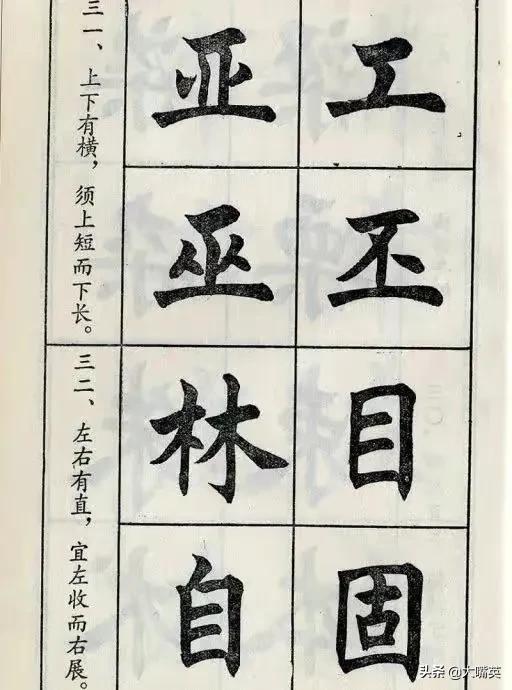 三一、上下有横，须上短而下长。
工
亚
丕
巫
三二、左右有直，宜左收而右展。
目
林
固
自
头条 @大嘴英